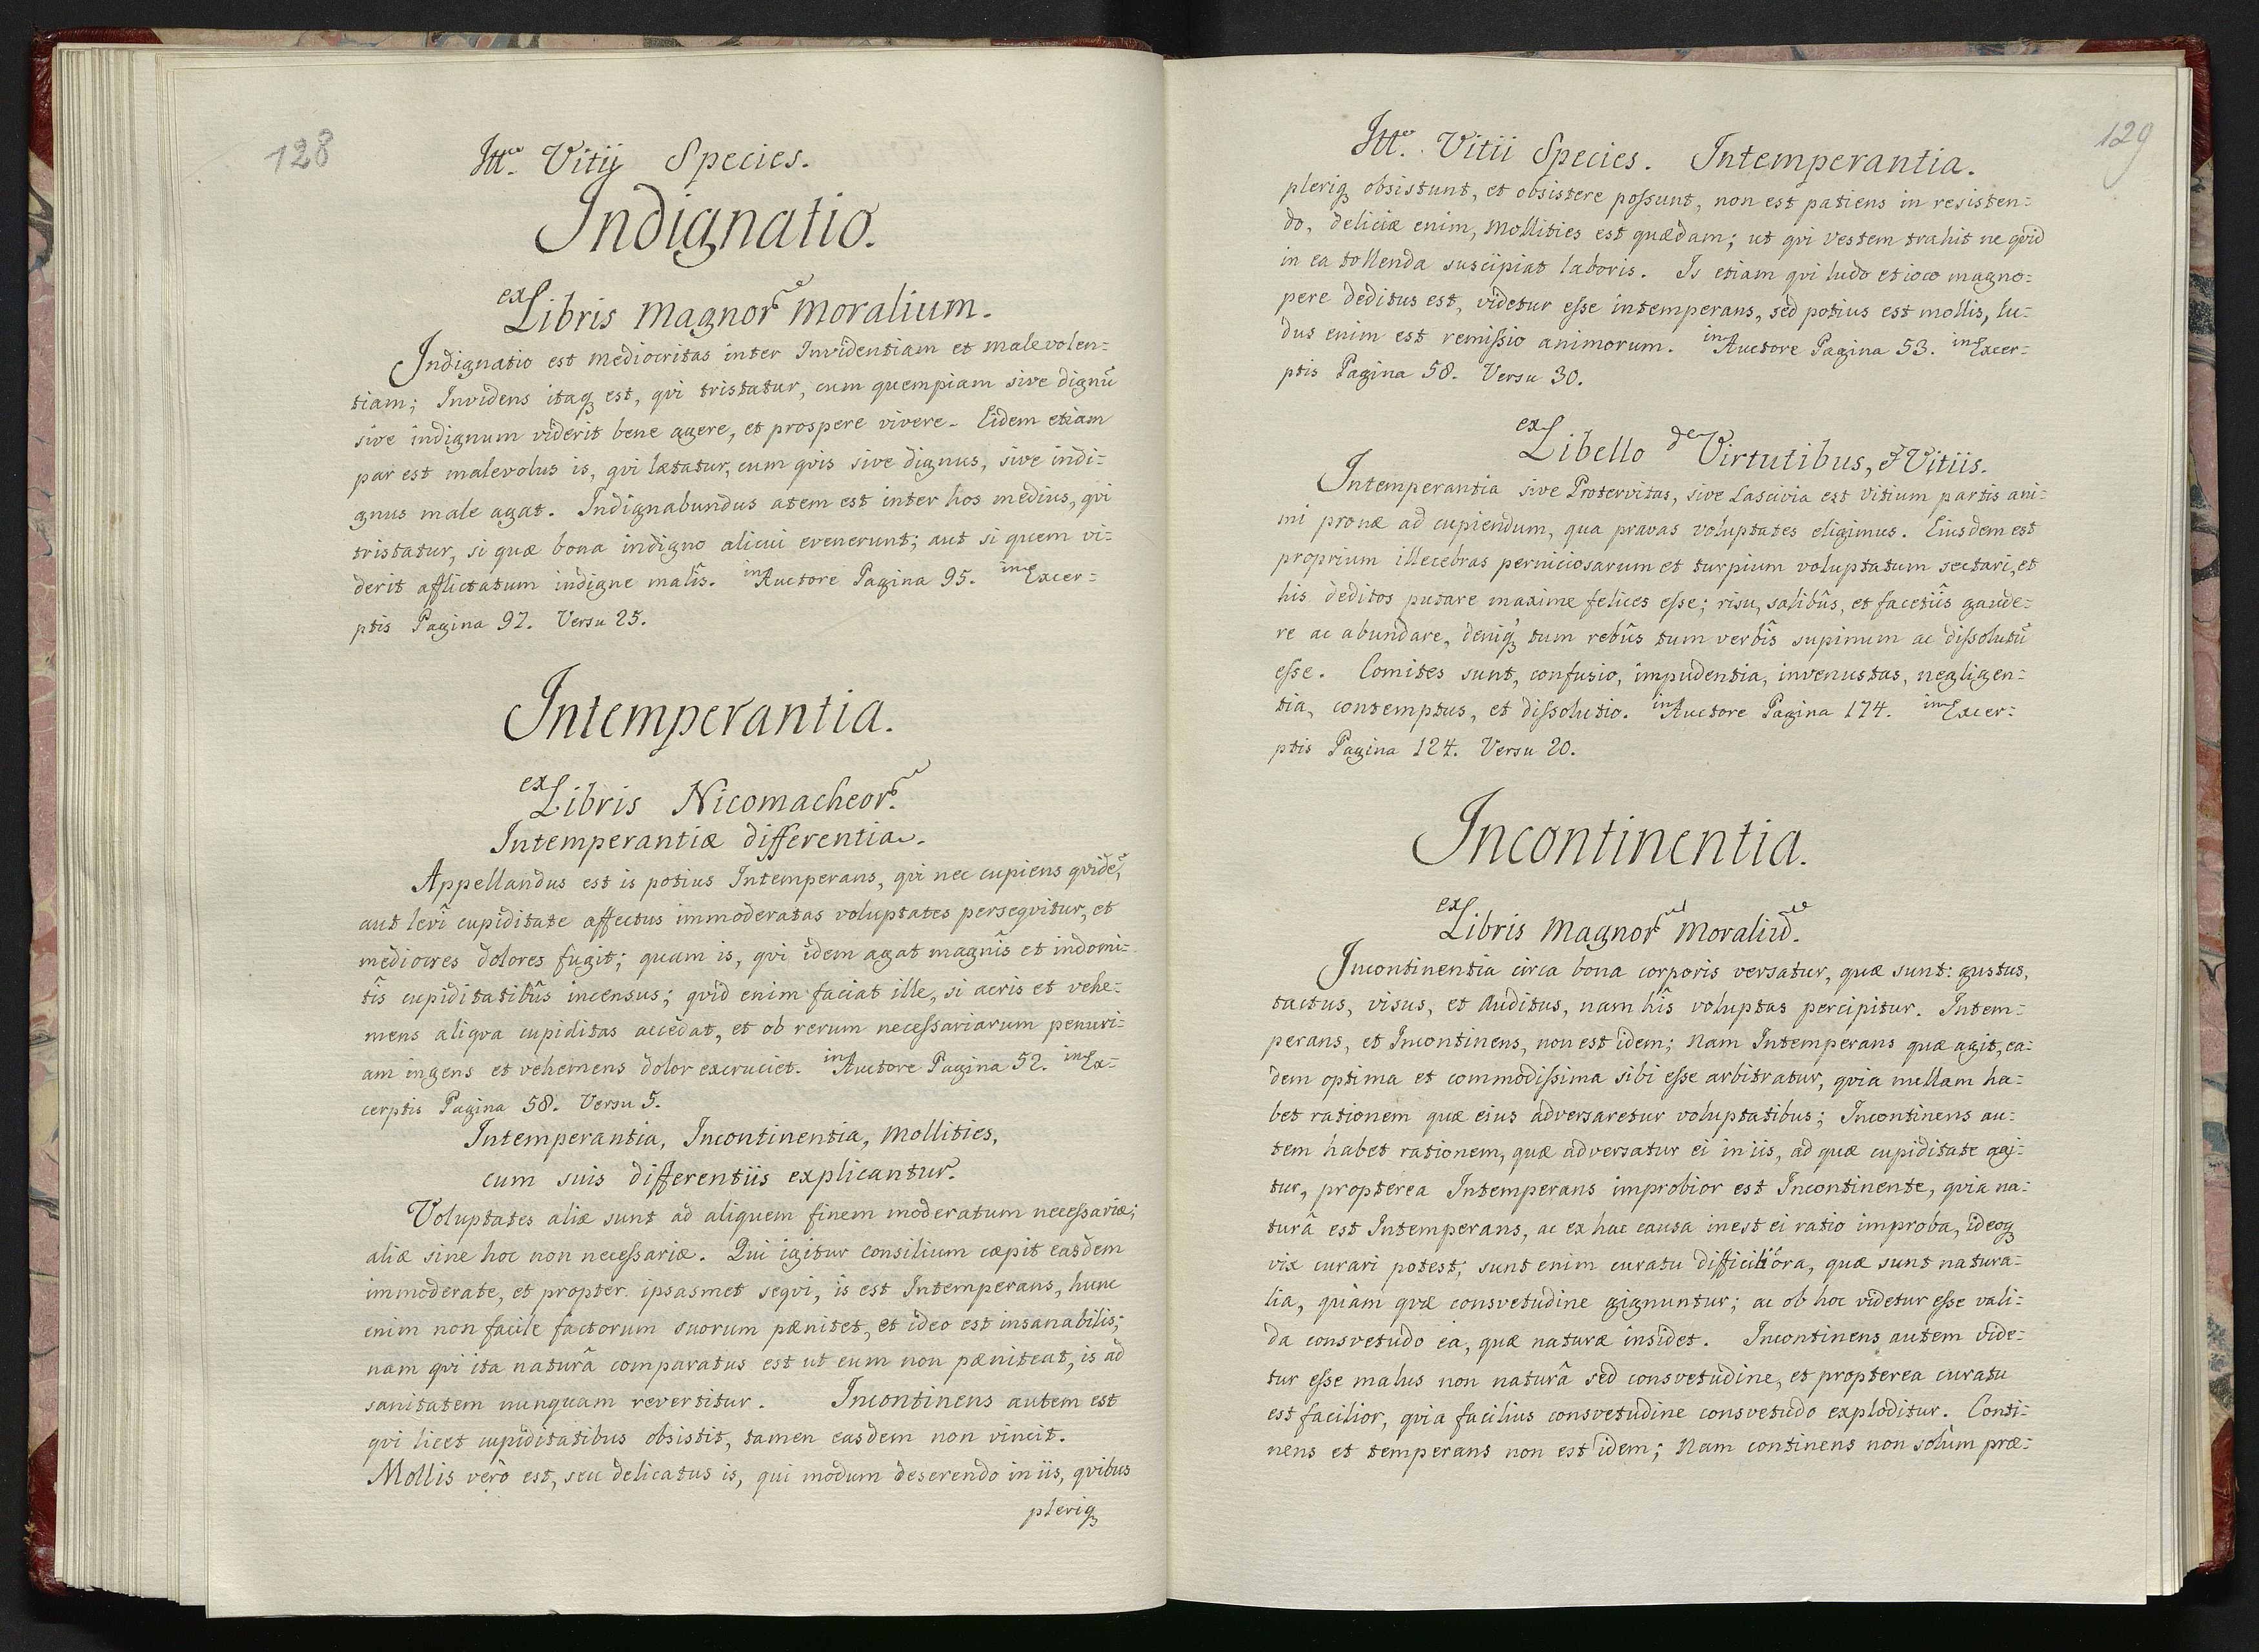 128
IItæ Vitij Species.
Indignatio.
ex Libris Magnor Moralium.
Indignatio est mediocritas inter Invidentiam et malevolen=
tiam; Invidens itaq est, qvi tristatur, cum quempiam sive dignū
sive indignum viderit bene agere, et prospere vivere. Eidem etiam
par est malevolus is, qvi lætatur, cum qvis sive dignus, sive indi=
gnus male agat. Indignabundus atem est inter hos medius, qvi
tristatur, si quæ bona indigno alicui evenerunt; aut si quem vi=
derit afflictatum indigne malîs. in Auctore Pagina 95. in Excer=
ptis Pagina 92. Versu 25.
Intemperantia.
ex Libris Nicomacheor.
Intemperantiæ differentia.
Appellandus est is potius Intemperans, qvi nec cupiens qvidē,
aut levî cupiditate affectus immoderatas voluptates perseqvitur, et
mediocres dolores fugit; quam is, qvi idem agat magnîs et indomi=
tîs cupiditatibûs incensus; qvid enim faciat ille, si acris et vehe=
mens aliqva cupiditas accedat, et ob rerum necessariarum penuri=
am ingens et vehemens dolor excruciet. in Auctore Pagina 52. in Ex=
cerptis Pagina 58. Versu 5.
Intemperantia, Incontinentia, Mollities,
cum suis differentiis explicantur.
Voluptates aliæ sunt ad aliquem finem moderatum necessariæ;
aliæ sine hoc non necessariæ. Qui igitur consilium cæpit easdem
immoderate, et propter ipsasmet seqvi, is est Intemperans, hunc
enim non facile factorum suorum pænitet, et ideo est insanabilis;
nam qvi ita naturâ comparatus est ut eum non pæniteat, is ad
sanitatem nunquam revertitur. Incontinens autem est
qvi licet cupiditatibus obsistit, tamen easdem non vincit.
Mollis verò est, seu delicatus is, qui modum deserendo in iis, qvibus
pleriq
129
IItæ Vitii Species. Intemperantia.
pleriq obsistunt, et obsistere possunt, non est patiens in resisten=
do, deliciæ enim, Mollities est quædam; ut qvi vestem trahit ne qvid
in ea tollenda suscipiat laboris. Is etiam qvi ludo et ioco magno=
pere deditus est, videtur esse intemperans, sed potius est mollis, lu=
dus enim est remissio animorum. in Auctore Pagina 53. in Excer=
ptis Pagina 58. Versu 30.
ex Libello de Virtutibus, & Vitiis.
Intemperantia sive Protervitas, sive Lascivia est vitium partis ani=
mi pronæ ad cupiendum, qua pravas voluptates eligimus. Eiusdem est
proprium illecebras perniciosarum et turpium voluptatum sectari, et
his deditos putare maxime felices esse; risu, salibûs, et facetiîs gaude=
re ac abundare, deniq tum rebûs tum verbîs supinum ac dissolutū
esse. Comites sunt, confusio, impudentia, invenustas, negligen=
tia, contemptus, et dissolutio. in Auctore Pagina 174. in Excer=
ptis Pagina 124. Versu 20.
Incontinentia.
ex Libris Magnor Moraliū.
Incontinentia circa bona corporis versatur, quæ sunt: gustus,
tactus, visus, et Auditus, nam hîs voluptas percipitur. Intem=
perans, et Incontinens, non est idem; Nam Intemperans quæ agit, ea=
dem optima et commodissima sibi esse arbitratur, qvia nullam ha=
bet rationem quæ eius adversaretur voluptatibus; Incontinens au=
tem habet rationem, quæ adversatur ei in iis, ad quæ cupiditate agi=
tur, propterea Intemperans improbior est Incontinente, qvia na=
turâ est Intemperans, ac ex hac causa inest ei ratio improba, ideoq
vix curari potest; sunt enim curatu difficiliora, quæ sunt natura=
lia, quàm qvæ consvetudine gignuntur; ac ob hoc videtur esse vali=
da consvetudo ea, quæ naturæ insidet. Incontinens autem vide=
tur esse malus non naturâ sed consvetudine, et propterea curatu
est facilior, qvia facilius consvetudine consvetudo exploditur. Conti=
nens et temperans non est idem; Nam continens non solùm præ=